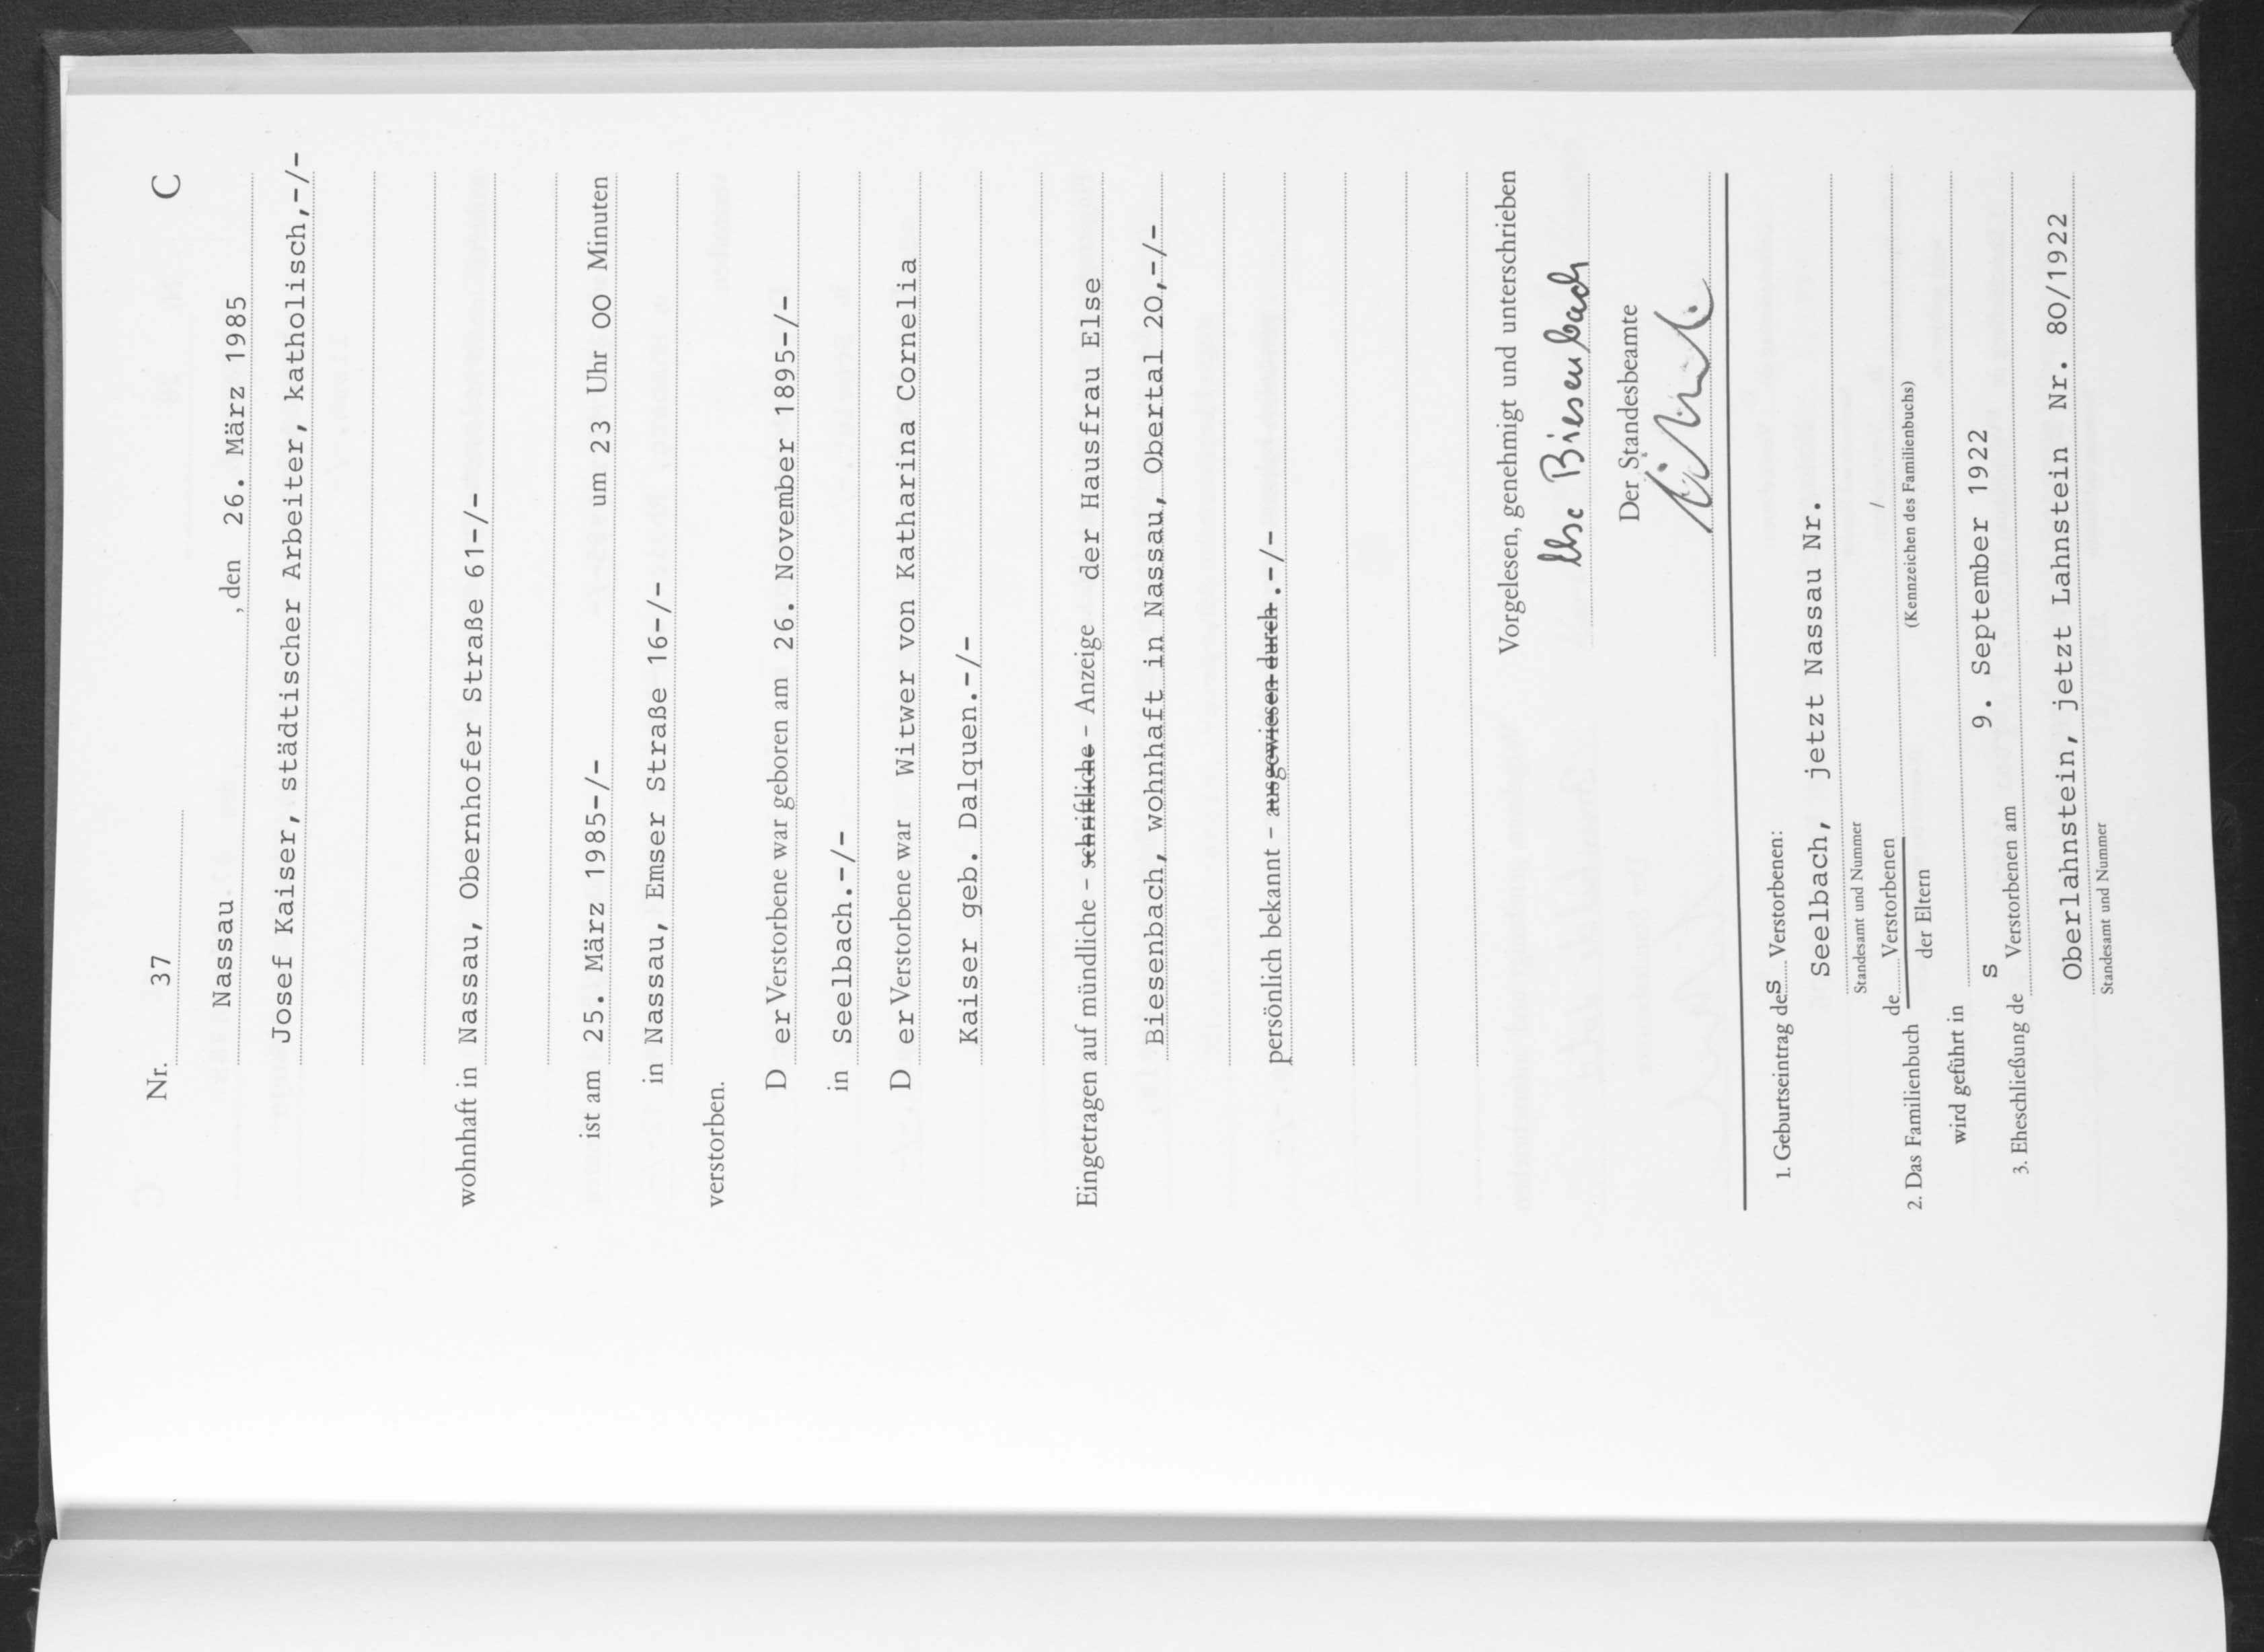 Nr. 37 C
Nassau , den 26. März 1985
Josef Kaiser, städtischer Arbeiter, katholisch,-/-
wohnhaft in Nassau, Obernhofer Straße 61-/-
ist am 25. März 1985-/- um 23 Uhr 00 Minuten
in Nassau, Emser Straße 16-/-
verstorben.
D er Verstorbene war geboren am 26. November 1895-/-
in Seelbach.-/-
D er Verstorbene war Witwer von Katharina Cornelia
Kaiser geb. Dalquen.-/-
Eingetragen auf mündliche - schriftliche - Anzeige der Hausfrau Else
Biesenbach, wohnhaft in Nassau, Obertal 20,-/-
persönlich bekannt - ausgewiesen durch.-/-
Vorgelesen, genehmigt und unterschrieben
Biesenbach
Der Standesbeamte
1. Geburtseintrag des Verstorbenen:
Seelbach, jetzt Nassau Nr.
Standesamt und Nummer
2. Das Familienbuch de Verstorbenen /
der Eltern (Kennzeichen des Familienbuchs)
wird geführt in
3. Eheschließung des Verstorbenen am 9. September 1922
Oberlahnstein, jetzt Lahnstein Nr. 80/1922
Standesamt und Nummer